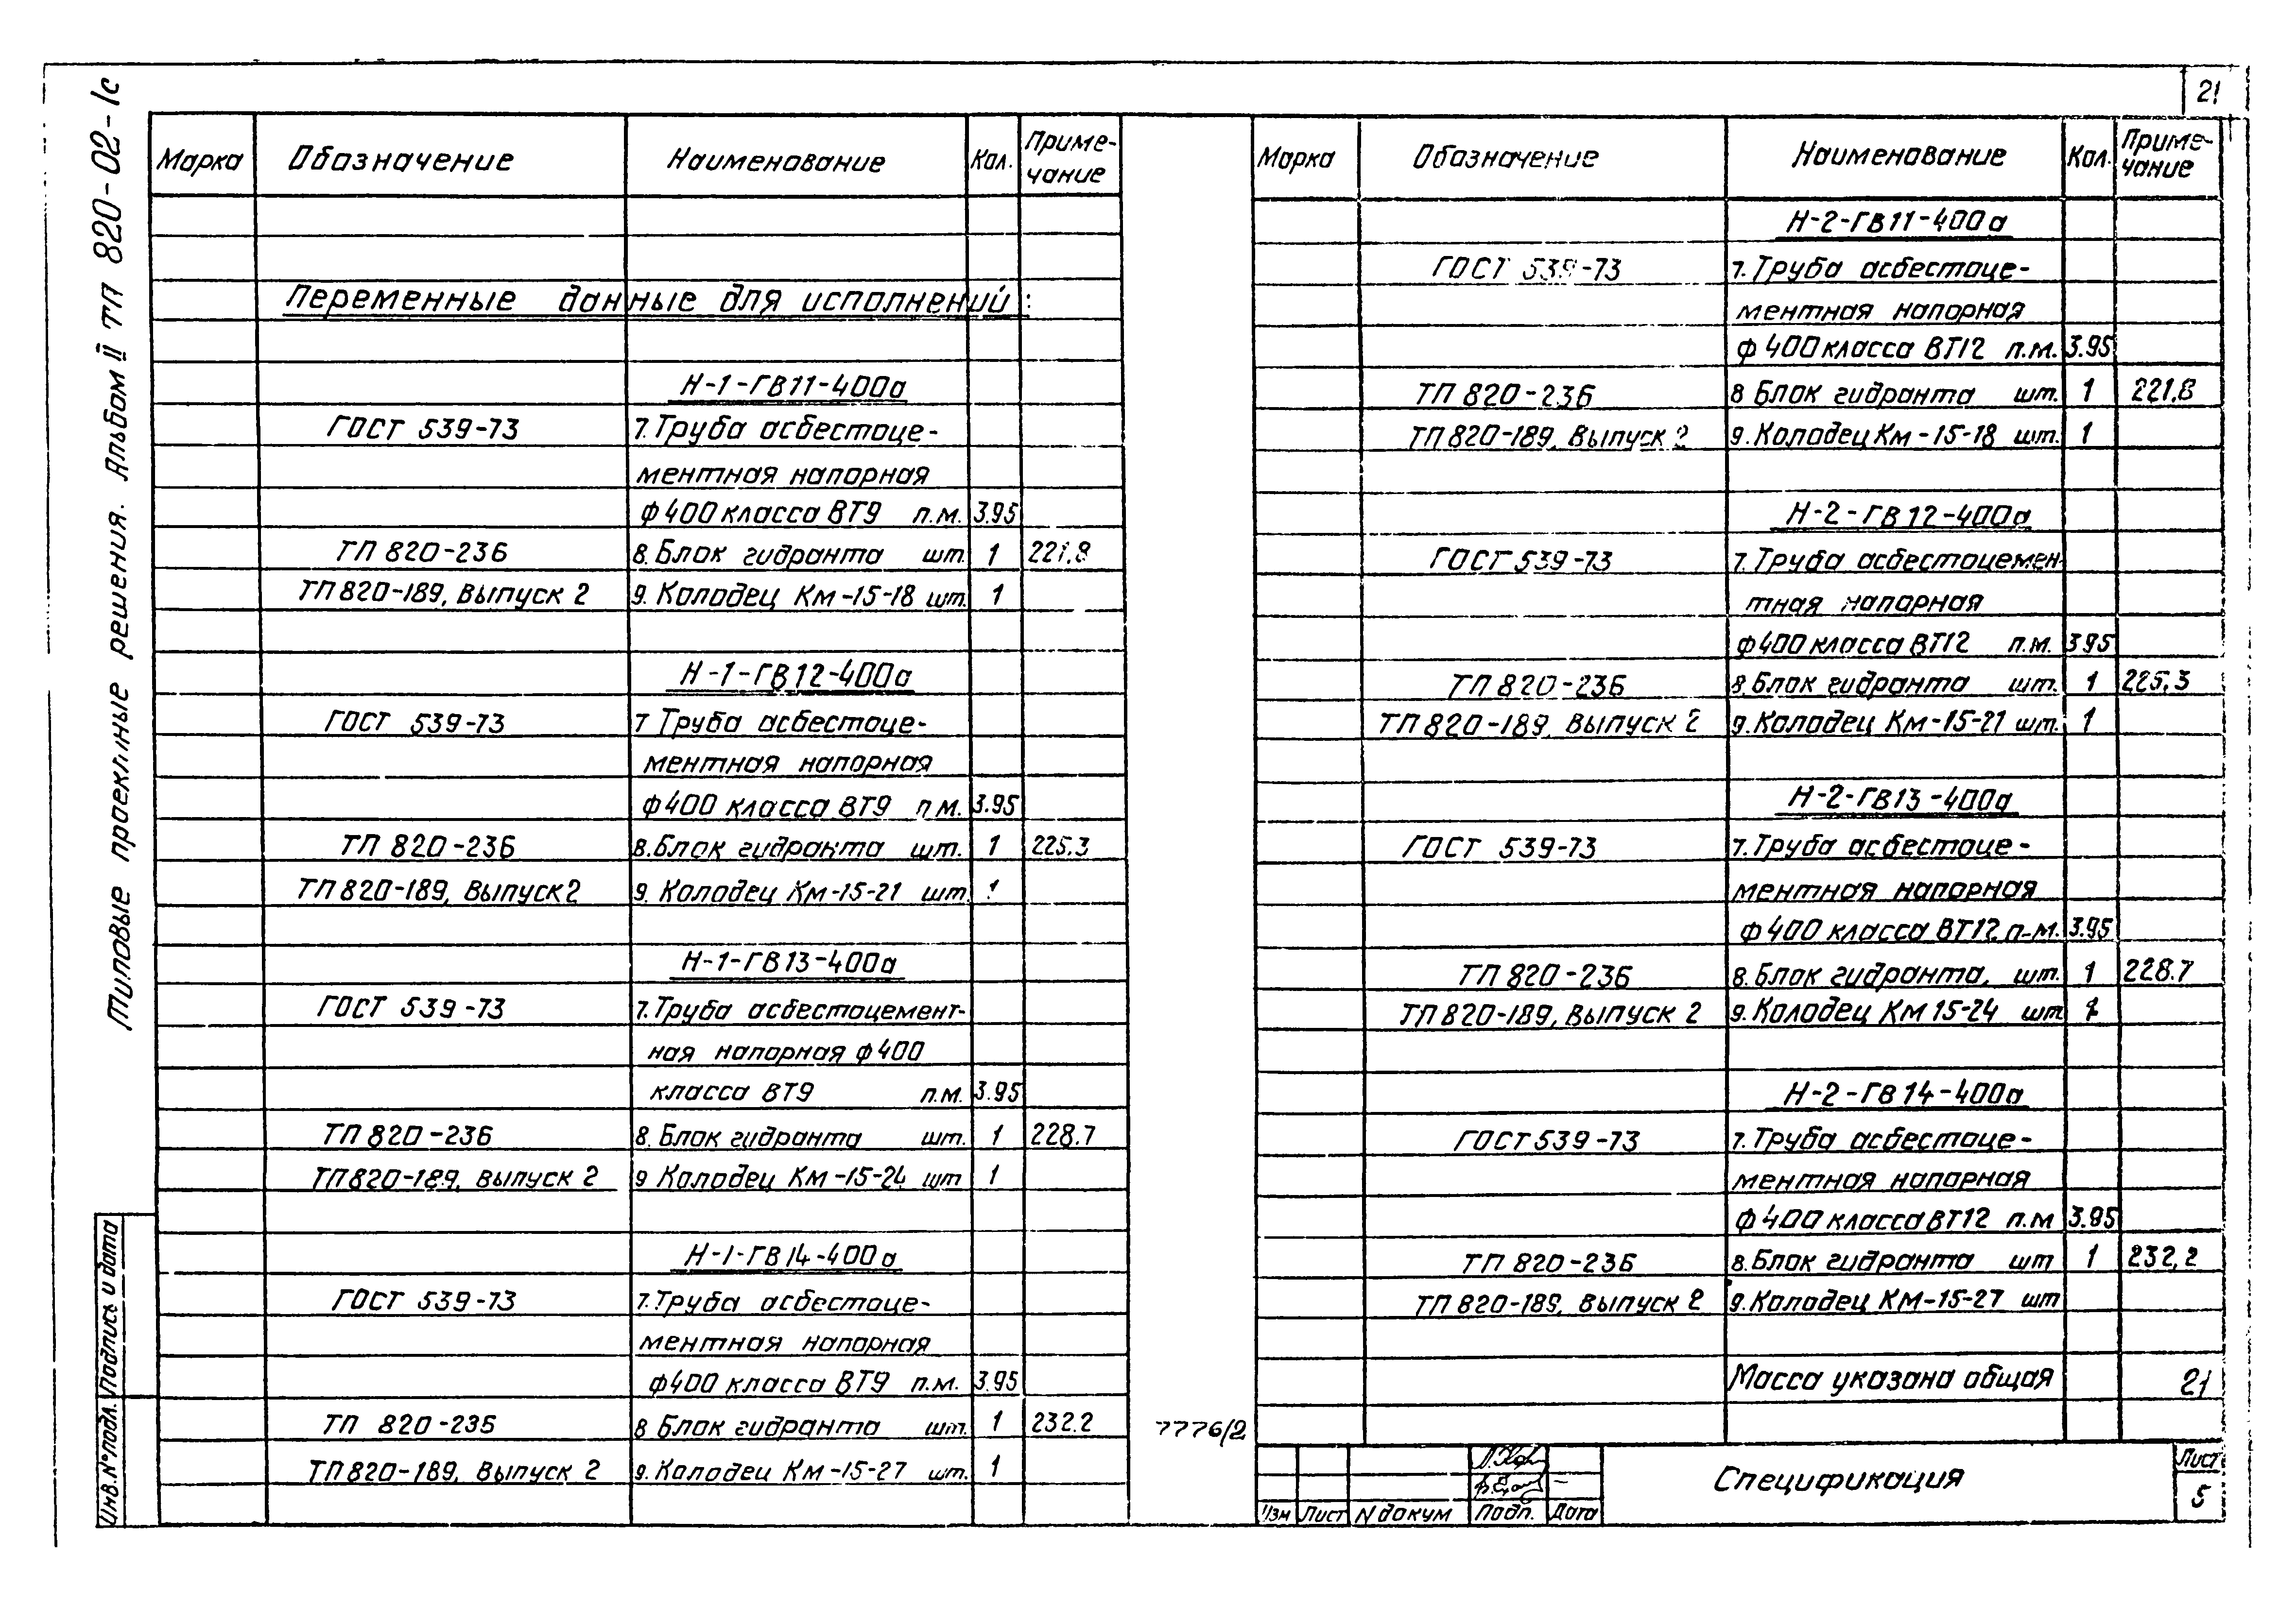 21
Типовые проектные решения. Альбом II ТП 820-02-1с
Марка Обозначение Наименование Кол. Приме-
чание
Переменные данные для исполнений:
Н-1-ГВ11-400а
ГОСТ 539-73 7. Труба асбестоце-
ментная напорная
ф400 класса ВТ9 п.м. 3.95
ТП 820-236 8. Блок гидранта шт. 1 221,8
ТП 820-189, Выпуск 2 9. Колодец Км-15-18 шт. 1
Н-1-ГВ12-400а
ГОСТ 539-73 7 Труба асбестоце-
ментная напорная
ф400 класса ВТ9 п.м. 3.95
ТП 820-236 8. Блок гидранта шт. 1 225.3
ТП 820-189, Выпуск 2 9. Колодец Км-15-21 шт. 1
Н-1-ГВ13-400а
ГОСТ 539-73 7. Труба асбестоцемент-
ная напорная ф400
класса ВТ9 п.м. 3.95
ТП 820-236 8. Блок гидранта шт. 1 228.7
ТП 820-189, Выпуск 2 9 Колодец Км-15-24 шт 1
Н-1-ГВ14-400а
ГОСТ 539-73 7. Труба асбестоце-
ментная напорная
ф400 класса ВТ9 п.м. 3.95
ТП 820-236 8 Блок гидранта шт. 1 232.2
ТП 820-189, Выпуск 2 9. Колодец Км-15-27 шт. 1
Инв.№подл. Подпись и дата
7776/2
Марка Обозначение Наименование Кол. Приме-
чание
Н-2-ГВ11-400а
ГОСТ 539-73 7. Труба асбестоце-
ментная напорная
ф400 класса ВТ12 п.м. 3.95
ТП 820-236 8 Блок гидранта шт. 1 221,8
ТП 820-189, Выпуск 2 9. Колодец Км-15-18 шт. 1
Н-2-ГВ12-400а
ГОСТ 539-73 7. Труба асбестоцемен-
тная напорная
ф400 класса ВТ12 п.м. 3.95
ТП 820-236 8. Блок гидранта шт. 1 225.3
ТП 820-189, Выпуск 2 9. Колодец Км-15-21 шт. 1
Н-2-ГВ13-400а
ГОСТ 539-73 7. Труба асбестоце-
ментная напорная
ф400 класса ВТ12 п.м. 3.95
ТП 820-236 8. Блок гидранта, шт. 1 228.7
ТП 820-189, Выпуск 2 9. Колодец Км 15-24 шт 1
Н-2-ГВ14-400а
ГОСТ 539-73 7. Труба асбестоце-
ментная напорная
ф400 класса ВТ12 п.м 3.95
ТП 820-236 8. Блок гидранта шт 1 232,2
ТП 820-189, Выпуск 2 9. Колодец КМ-15-27 шт
Масса указана общая 21
Изм Лист N докум Подп. Дата
Спецификация
Лист
5